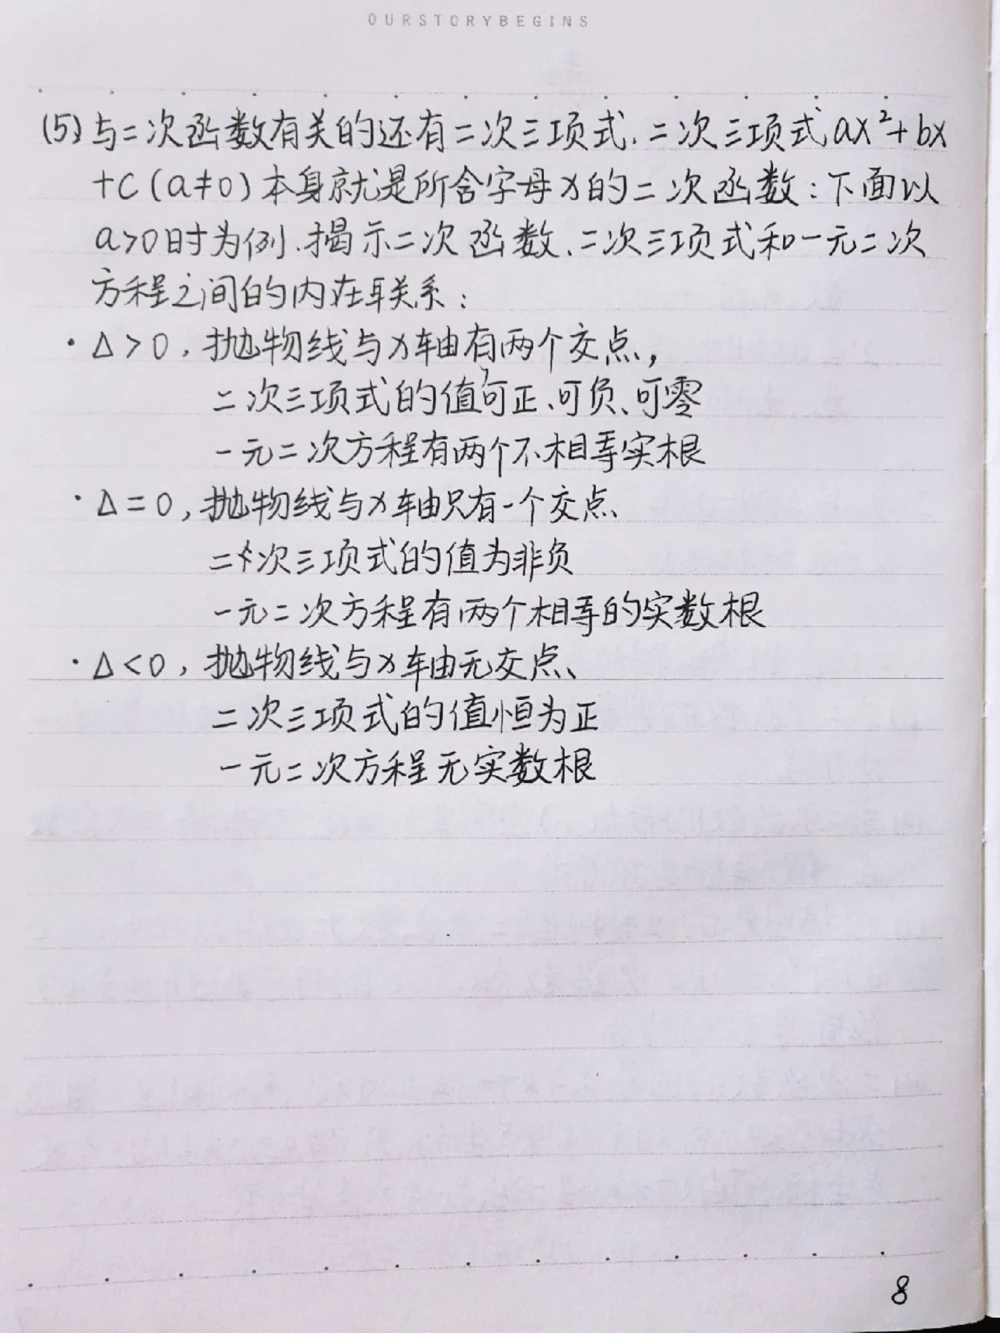 OURSTORYBEGINS
(5)与二次函数有关的还有二次三项式.二次三项式ax²+bx
+c(a≠0)本身就是所含字母x的二次函数:下面以
a>0时为例.揭示二次函数、二次三项式和一元二次
方程之间的内在联系:
·Δ>0,抛物线与x轴有两个交点,
二次三项式的值可正、可负、可零
一元二次方程有两个不相等实根
·Δ=0,抛物线与x轴只有一个交点、
二次三项式的值为非负
一元二次方程有两个相等的实数根
·Δ<0,抛物线与x轴无交点、
二次三项式的值恒为正
一元二次方程无实数根
8